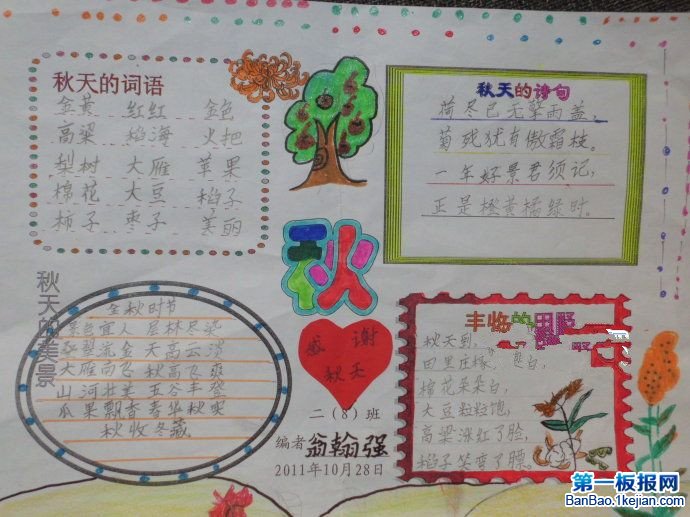 秋天的词语
金黄 红红 金色
高梁 稻海 火把
梨树 大雁 苹果
棉花 大豆 稻子
柿子 枣子 美丽
秋天的诗句
荷尽已无擎雨盖,
菊残犹有傲霜枝。
一年好景君须记,
正是橙黄橘绿时。
秋
感谢
秋天
二(8)班
编者 翁翰强
2011年10月28日
秋天的美景
金秋时节
景色宜人 层林尽染
翠流金 天高云淡
大雁南飞 秋高飞爽
山河壮美 五谷丰登
瓜果飘香 春华秋实
秋收冬藏
丰收的田野
秋天到,
田里庄稼
棉花朵朵白,
大豆粒粒饱,
高梁涨红了脸,
稻子笑弯了腰。
第一板报网
BanBao.1kejian.com